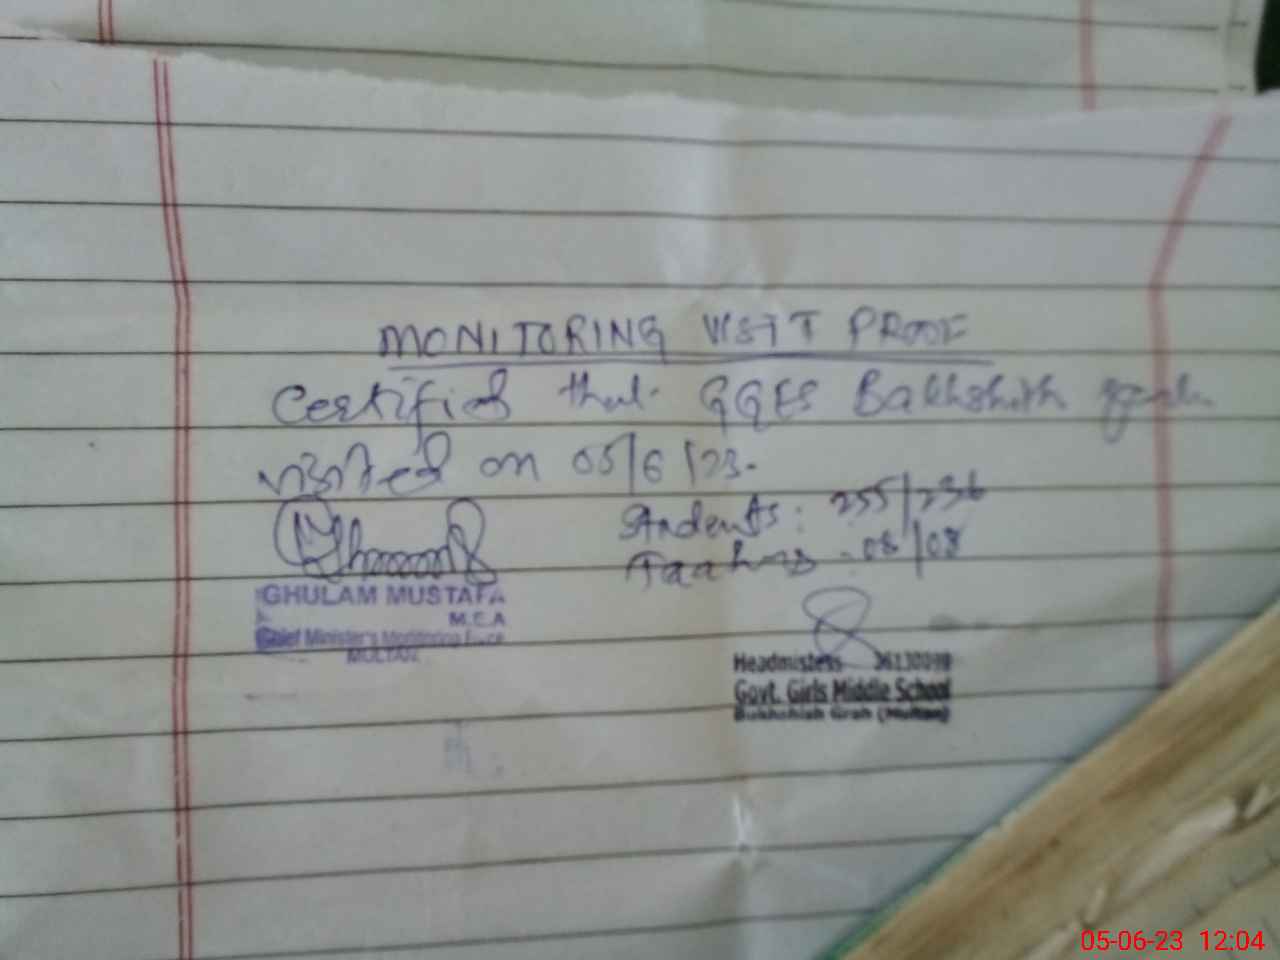 MONITORING VISIT PROOF
Certified that GGES Bakhshish
visited on 05/6/23.
Students: 255/236
Teachers: 08/08
GHULAM MUSTAFA
M.E.A
Chief Minister's Monitoring Force
MULTAN
Headmistess
Govt. Girls Middle School
Bukhshish Grah (Multan)
05-06-23 12:04